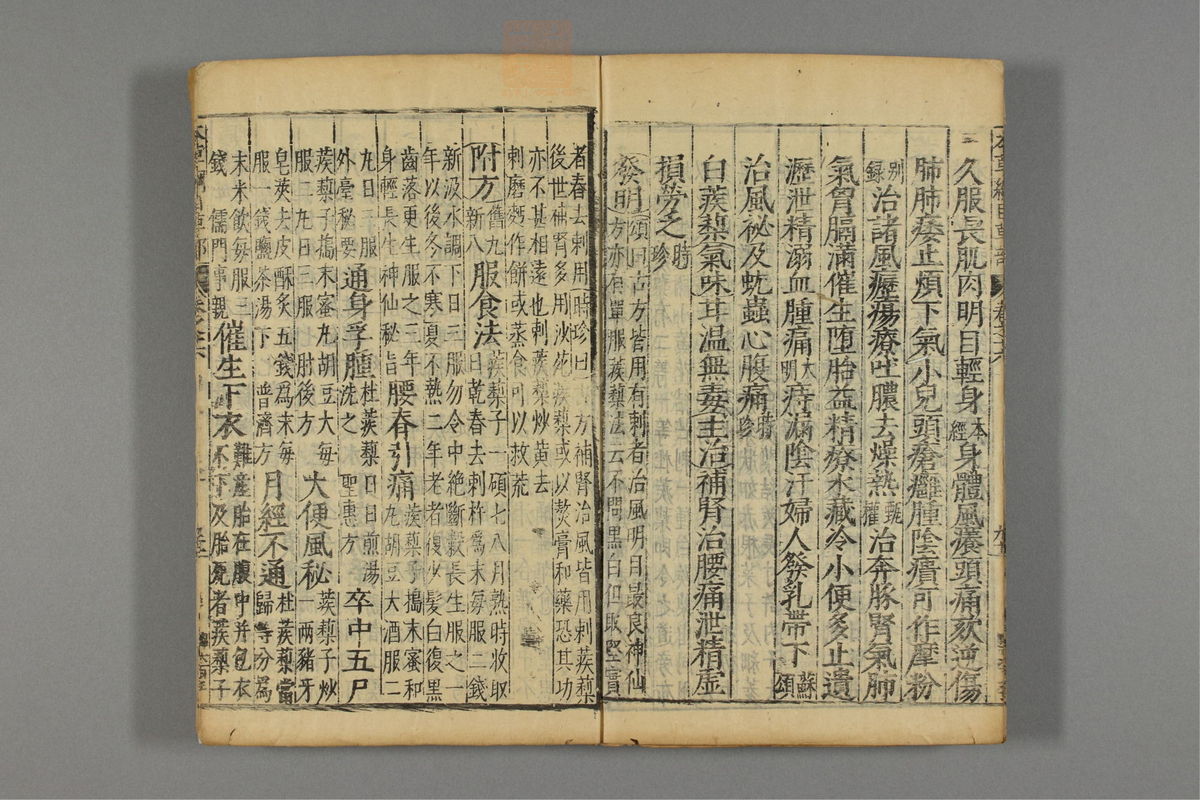 久服長肌肉明目輕身本經身體風癢頭痛欬逆傷
肺肺痿止煩下氣小兒頭瘡癰腫陰㿉可作摩粉
別錄治諸風癧瘍療吐膿去燥熱甄權治奔豚腎氣肺
氣胷膈滿催生墮胎益精療水藏冷小便多止遺
瀝泄精溺血腫痛大明痔漏陰汗婦人發乳帶下蘇頌
治風祕及蚘蟲心腹痛時珍
白蒺藜氣味甘溫無毒主治補腎治腰痛泄精虛
損勞乏時珍
發明頌曰古方皆用有刺者治風明目最良神仙
方亦有單服蒺藜法云不問黑白但取堅實
者舂去刺用時珍曰古方補腎治風皆用刺蒺藜
後世補腎多用沙苑蒺藜或以熬膏和藥恐其功
亦不甚相遠也刺蒺藜炒黃去
刺磨麪作餅或蒸食可以救荒
附方舊九新八服食法蒺藜子一碩七八月熟時收取日乾舂去刺杵爲末每服二錢
新汲水調下日三服勿令中絕斷穀長生服之一
年以後冬不寒夏不熱二年老者復少髮白復黑
齒落更生服之三年身輕長生神仙秘旨腰脊引痛蒺藜子搗末蜜和丸胡豆大酒服二
九日三服外臺秘要通身浮腫杜蒺藜日日煎湯洗之聖惠方卒中五尸
蒺藜子搗末蜜丸胡豆大每服二丸日三服肘後方大便風秘蒺藜子炒一兩豬牙
皂莢去皮酥炙五錢爲末每服一錢鹽茶湯下普濟方月經不通杜蒺藜當歸等分爲
末米飲每服三錢儒門事親催生下衣難產胎在腹中并包衣不下及胎死者蒺藜子